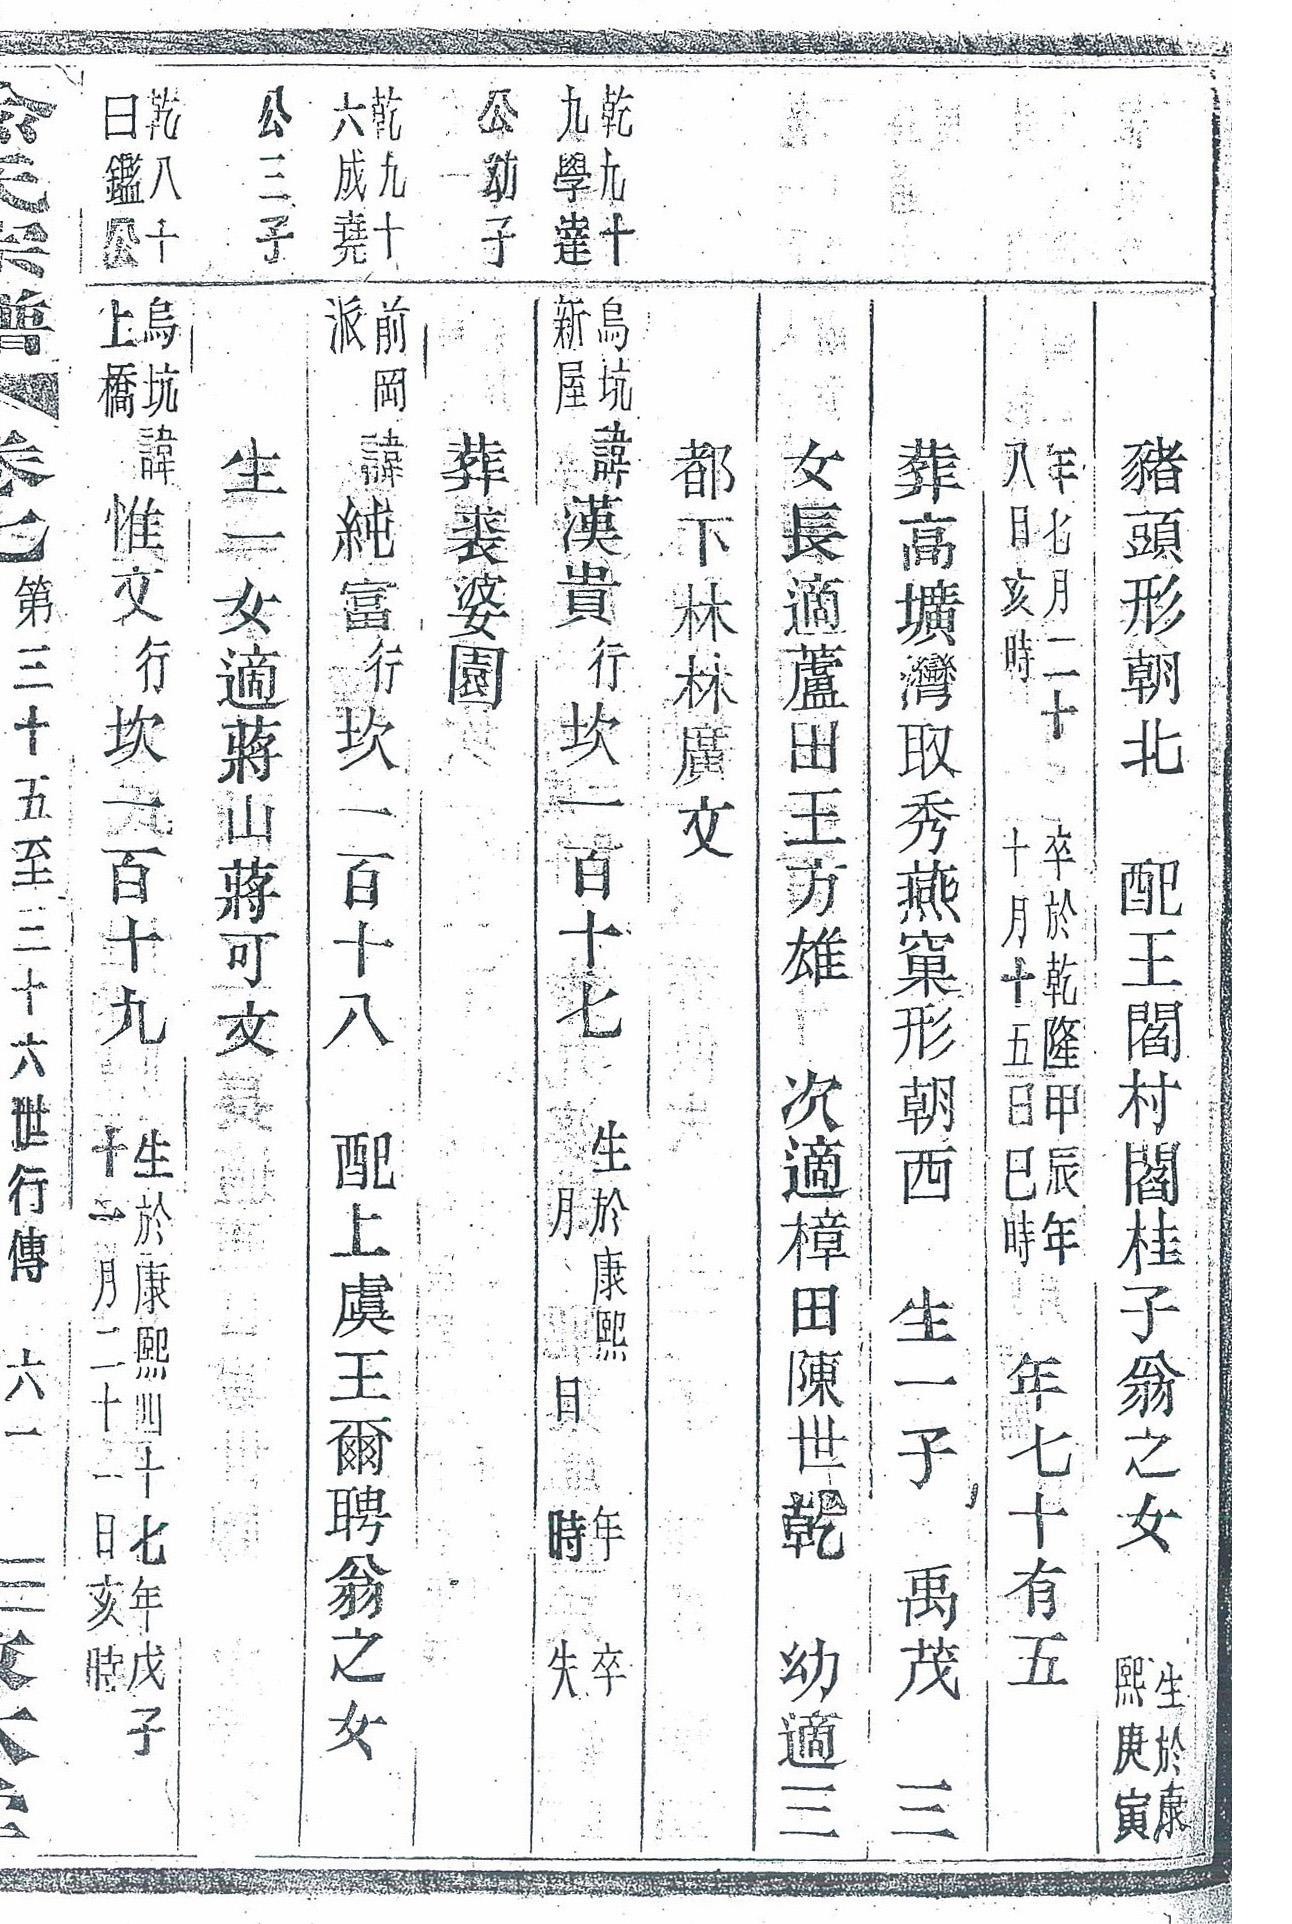 豬頭形朝北 配王閻村閻桂子翁之女 生於康
熙庚寅
年七月二十 卒於乾隆甲辰年
八日亥時 十月十五日巳時 年七十有五
葬高壙灣取秀燕窠形朝西 生一子 禹茂 三
女長適蘆田王方雄 次適樟田陳世乾 幼適三
都下林林廣文
乾九十
九學達
烏坑
新屋
諱漢貴行坎一百十七 生於康熙 年 卒
月 日 時 失
公幼子
葬裘婆園
乾九十
六成堯
前岡
派
諱純富行坎一百十八 配上虞王爾聘翁之女
公三子
生一女適蔣山蔣可文
乾八十
曰鑑公
烏坑
上橋
諱惟文行坎一百十九 生於康熙四十七年戊子
十一月二十一日亥時
宗譜 卷七 第三十五至三十六世行傳 六一